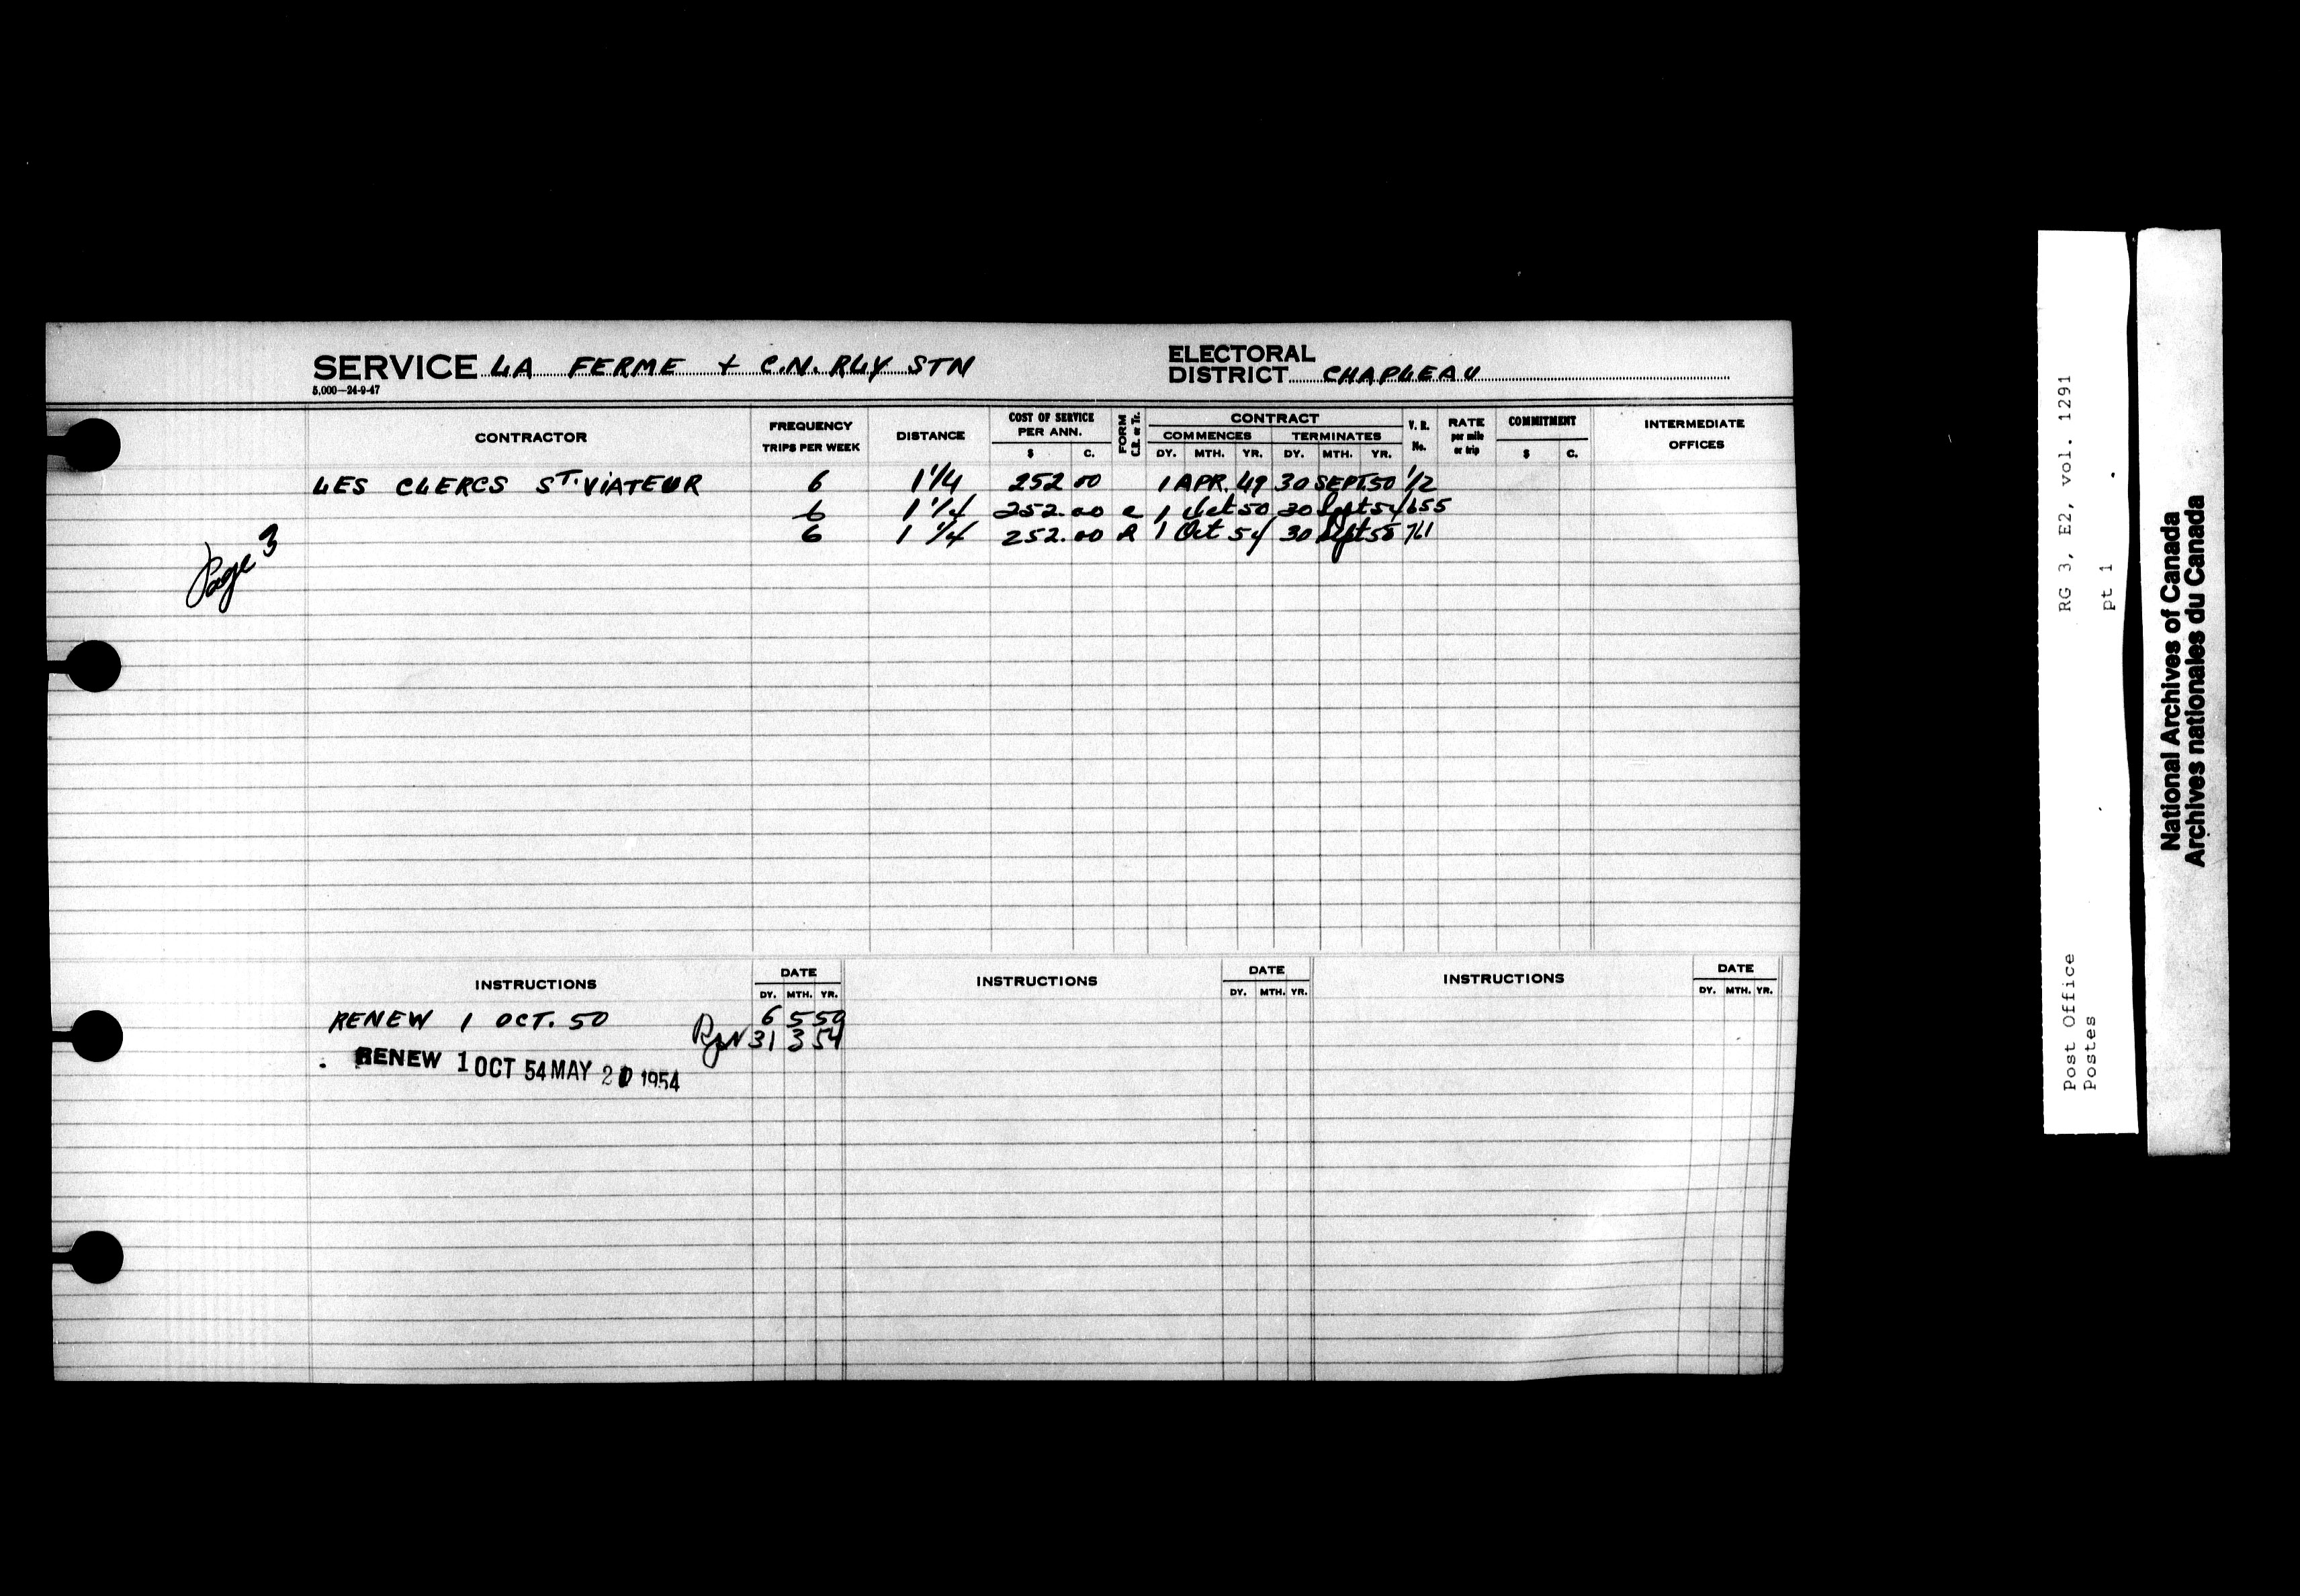 SERVICE LA FERME + C.N. RLY STN
5,000—24-9-47
ELECTORAL
DISTRICT CHAPLEAU
CONTRACTOR
FREQUENCY
TRIPS PER WEEK
DISTANCE
COST OF SERVICE
PER ANN.
$ C.
FORM
C.R. or Tr.
CONTRACT
COMMENCES TERMINATES
DY. MTH. YR. DY. MTH. YR.
V. R.
No.
RATE
per mile
or trip
COMMITMENT
$ C.
INTERMEDIATE
OFFICES
LES CLERCS ST. VIATEUR 6 1 1/4 252 00 1 APR. 49 30 SEPT. 50 1/2
6 1 1/4 252.00 1 Oct 50 30 Sept 54 655
6 1 1/4 252.00 R 1 Oct 54 30 Sept 58 761
Page 3
INSTRUCTIONS DATE INSTRUCTIONS DATE INSTRUCTIONS DATE
DY. MTH. YR. DY. MTH. YR. DY. MTH. YR.
RENEW 1 OCT. 50 6 5 50
31 3 54
RENEW 1 OCT 54 MAY 20 1954
RG 3, E2, vol. 1291
pt 1
Post Office
Postes
National Archives of Canada
Archives nationales du Canada